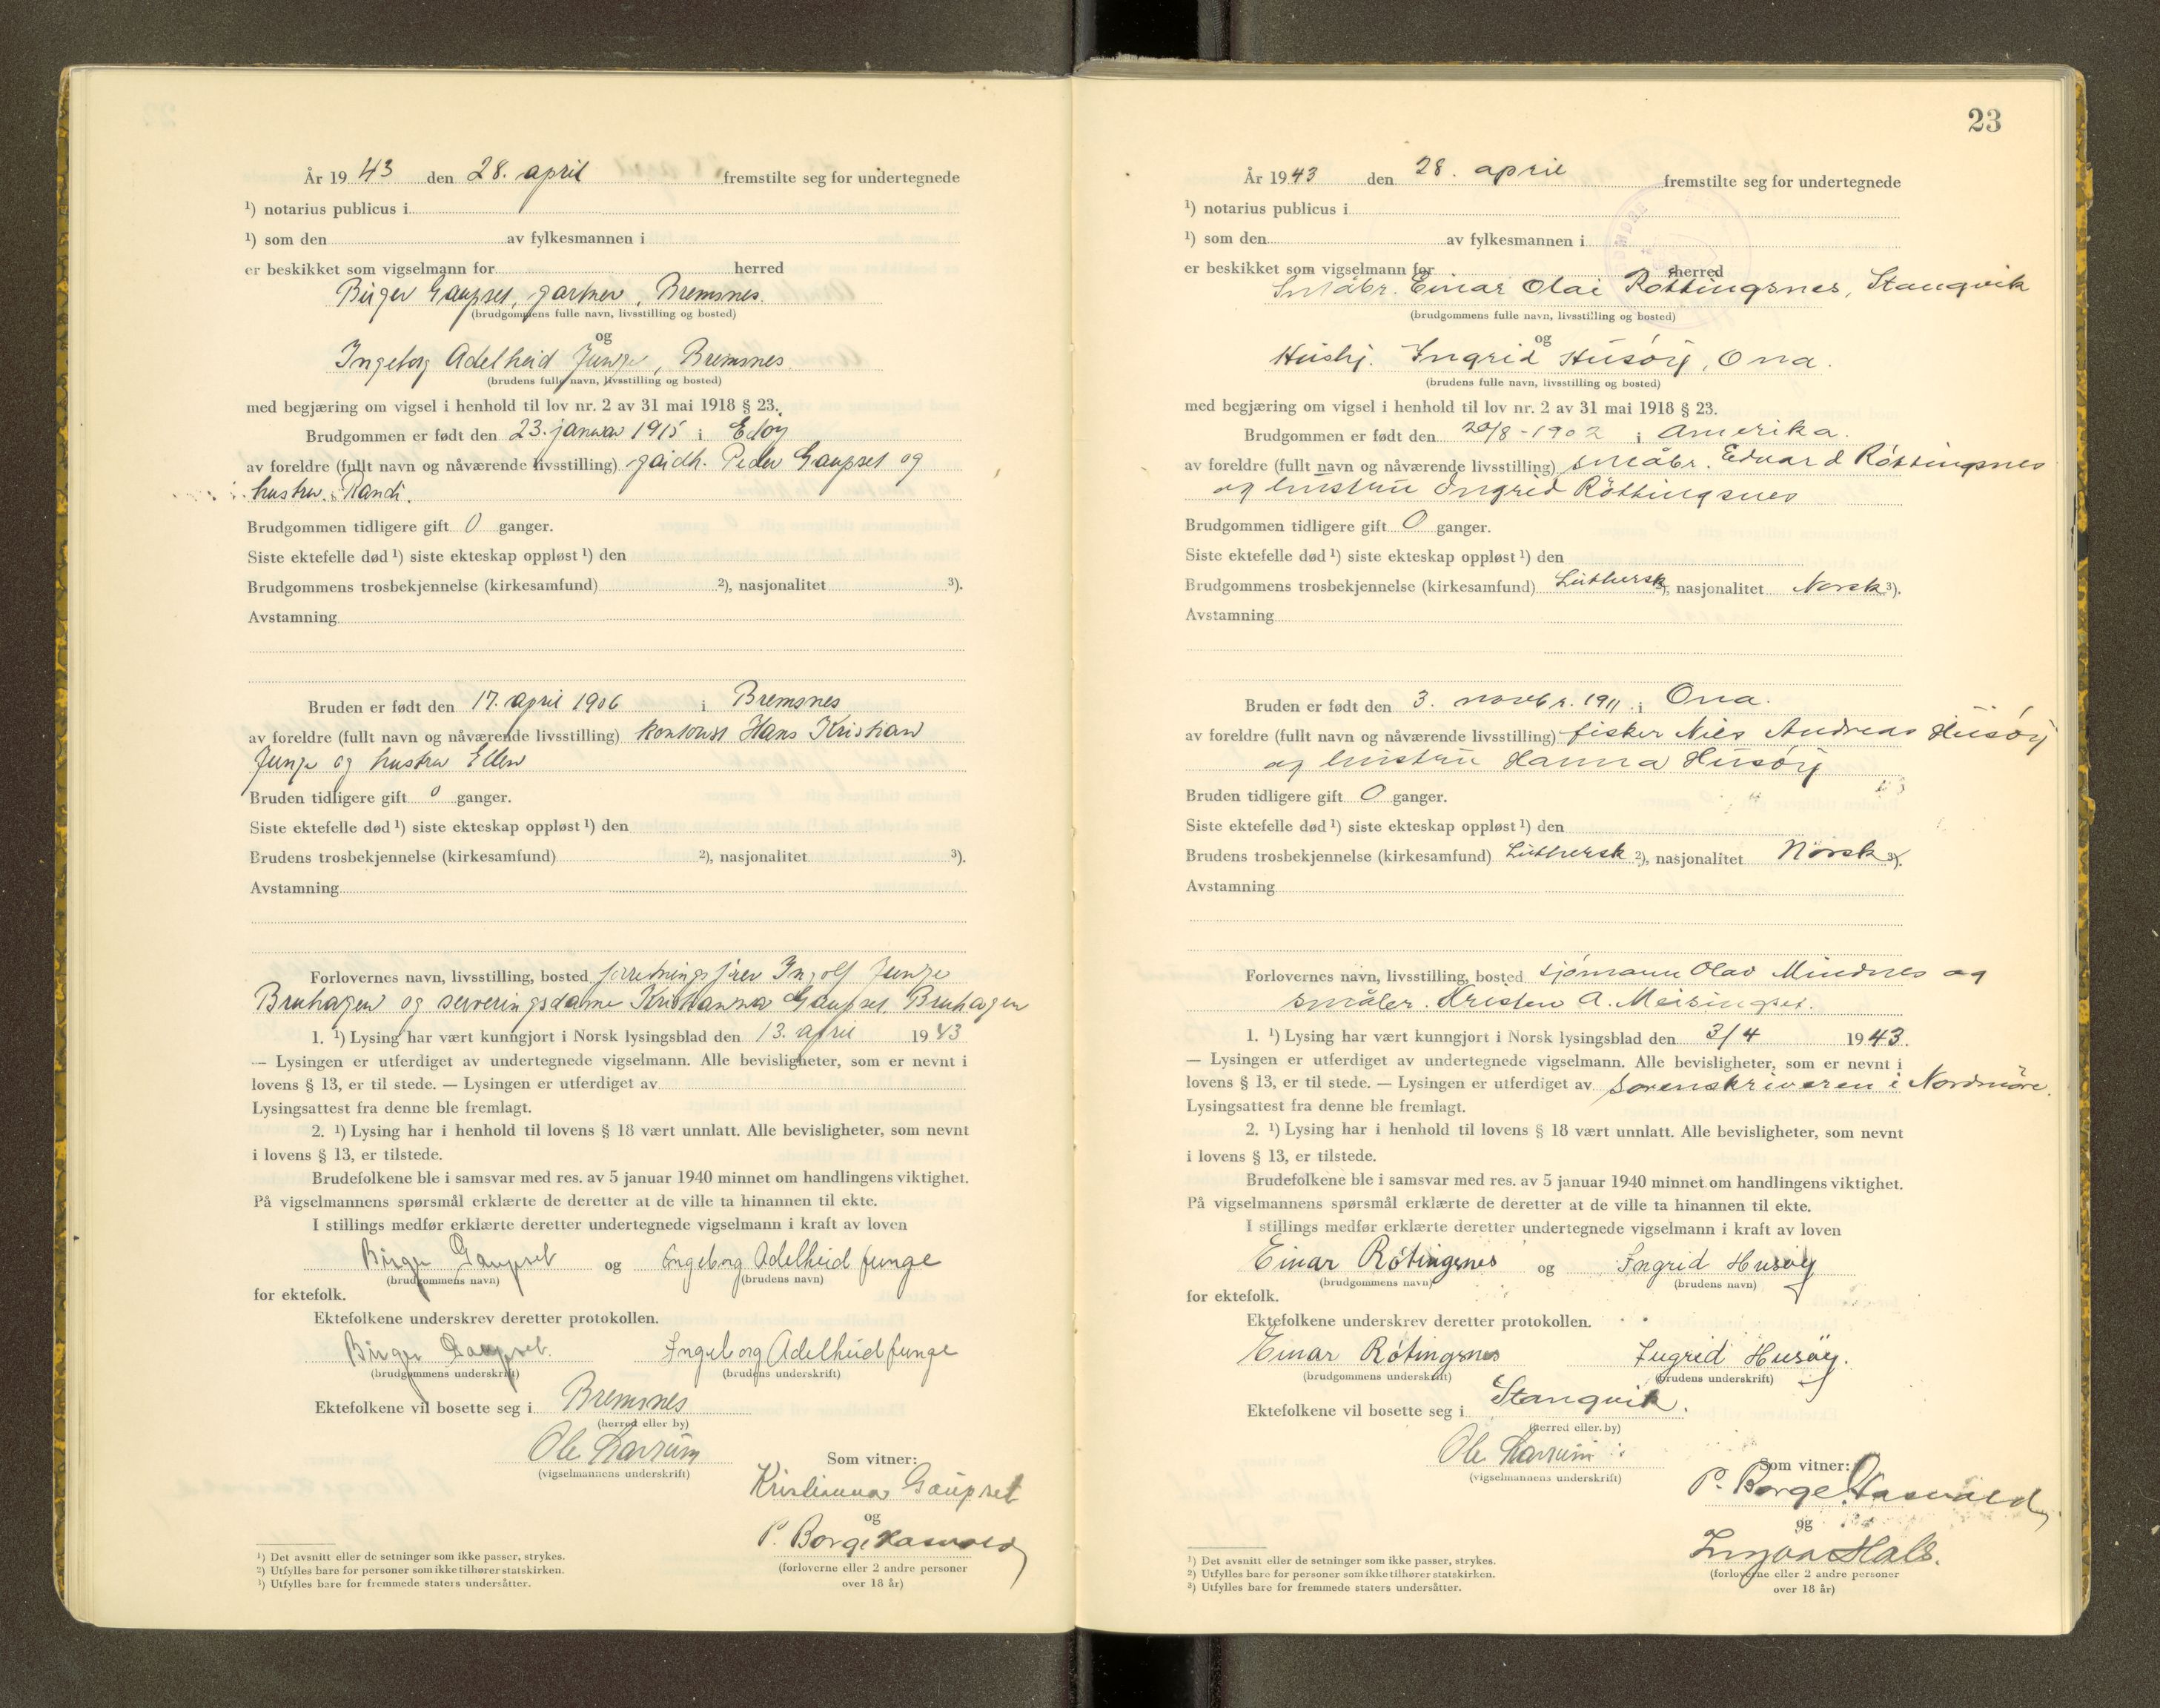 År 19 43 den 28. april fremstilte seg for undertegnede
¹) notarius publicus i
¹) som den av fylkesmannen i
er beskikket som vigselmann for herred
Birger Gaupset, gartner, Bremsnes.
(brudgommens fulle navn, livsstilling og bosted)
og
Ingeborg Adelheid Junge, Bremsnes
(brudens fulle navn, livsstilling og bosted)
med begjæring om vigsel i henhold til lov nr. 2 av 31 mai 1918 § 23.
Brudgommen er født den 23. januar 1915 i Edøy
av foreldre (fullt navn og nåværende livsstilling) gårdbr. Peder Gaupset og
hustru Randi.
Brudgommen tidligere gift 0 ganger.
Siste ektefelle død ¹) siste ekteskap oppløst ¹) den
Brudgommens trosbekjennelse (kirkesamfund) ²), nasjonalitet ³).
Avstamning
Bruden er født den 17. april 1906 i Bremsnes
av foreldre (fullt navn og nåværende livsstilling) kontorist Hans Kristian
Junge og hustru Ellen
Bruden tidligere gift 0 ganger.
Siste ektefelle død ¹) siste ekteskap oppløst ¹) den
Brudens trosbekjennelse (kirkesamfund) ²), nasjonalitet ³).
Avstamning
Forlovernes navn, livsstilling, bosted Ingolf Junge
Bruhagen og serveringsdame Kristianna Gaupset. Bruhagen
1. ¹) Lysing har vært kunngjort i Norsk lysingsblad den 13. april 19 43
— Lysingen er utferdiget av undertegnede vigselmann. Alle bevisligheter, som er nevnt i
lovens § 13, er til stede. — Lysingen er utferdiget av
Lysingsattest fra denne ble fremlagt.
2. ¹) Lysing har i henhold til lovens § 18 vært unnlatt. Alle bevisligheter, som nevnt
i lovens § 13, er tilstede.
Brudefolkene ble i samsvar med res. av 5 januar 1940 minnet om handlingens viktighet.
På vigselmannens spørsmål erklærte de deretter at de ville ta hinannen til ekte.
I stillings medfør erklærte deretter undertegnede vigselmann i kraft av loven
Birger Gaupset og Ingeborg Adelheid Junge
(brudgommens navn) (brudens navn)
for ektefolk.
Ektefolkene underskrev deretter protokollen.
Birger Gaupset. Ingeborg Adelheid Junge
(brudgommens underskrift) (brudens underskrift)
Ektefolkene vil bosette seg i Bremsnes
(herred eller by)
Ole Larsum
(vigselmannens underskrift)
Som vitner:
Kristianna Gaupset
og
P. Borge Hasvold
(forloverne eller 2 andre personer
over 18 år)
¹) Det avsnitt eller de setninger som ikke passer, strykes.
²) Utfylles bare for personer som ikke tilhører statskirken.
³) Utfylles bare for fremmede staters undersåtter.
23
År 19 43 den 28. april fremstilte seg for undertegnede
¹) notarius publicus i
¹) som den av fylkesmannen i
er beskikket som vigselmann for herred
Småbr. Einar Olai Røttingsnes, Stangvik
(brudgommens fulle navn, livsstilling og bosted)
og
Hushj. Ingrid Husøy, Ona.
(brudens fulle navn, livsstilling og bosted)
med begjæring om vigsel i henhold til lov nr. 2 av 31 mai 1918 § 23.
Brudgommen er født den 20/8 - 1902 i Amerika.
av foreldre (fullt navn og nåværende livsstilling) småbr. Edvard Røttingsnes
og hustru Ingrid Røttingsnes
Brudgommen tidligere gift 0 ganger.
Siste ektefelle død ¹) siste ekteskap oppløst ¹) den
Brudgommens trosbekjennelse (kirkesamfund) Luthersk ²), nasjonalitet Norsk ³).
Avstamning
Bruden er født den 3. novbr. 1911 i Ona.
av foreldre (fullt navn og nåværende livsstilling) fisker Nils Andreas Husøy
og hustru Hanna Husøy
Bruden tidligere gift 0 ganger.
Siste ektefelle død ¹) siste ekteskap oppløst ¹) den
Brudens trosbekjennelse (kirkesamfund) Luthersk ²), nasjonalitet Norsk ³).
Avstamning
Forlovernes navn, livsstilling, bosted sjømann Olav Mindnes og
småbr. Kristen A. Meisingset.
1. ¹) Lysing har vært kunngjort i Norsk lysingsblad den 3/4 19 43.
— Lysingen er utferdiget av undertegnede vigselmann. Alle bevisligheter, som er nevnt i
lovens § 13, er til stede. — Lysingen er utferdiget av sorenskriveren i Nordmøre.
Lysingsattest fra denne ble fremlagt.
2. ¹) Lysing har i henhold til lovens § 18 vært unnlatt. Alle bevisligheter, som nevnt
i lovens § 13, er tilstede.
Brudefolkene ble i samsvar med res. av 5 januar 1940 minnet om handlingens viktighet.
På vigselmannens spørsmål erklærte de deretter at de ville ta hinannen til ekte.
I stillings medfør erklærte deretter undertegnede vigselmann i kraft av loven
Einar Røtingsnes og Ingrid Husøy
(brudgommens navn) (brudens navn)
for ektefolk.
Ektefolkene underskrev deretter protokollen.
Einar Røtingsnes Ingrid Husøy.
(brudgommens underskrift) (brudens underskrift)
Ektefolkene vil bosette seg i Stangvik.
(herred eller by)
Ole Larsum
(vigselmannens underskrift)
Som vitner:
P. Borge Hasvold
og
Hals.
(forloverne eller 2 andre personer
over 18 år)
¹) Det avsnitt eller de setninger som ikke passer, strykes.
²) Utfylles bare for personer som ikke tilhører statskirken.
³) Utfylles bare for fremmede staters undersåtter.